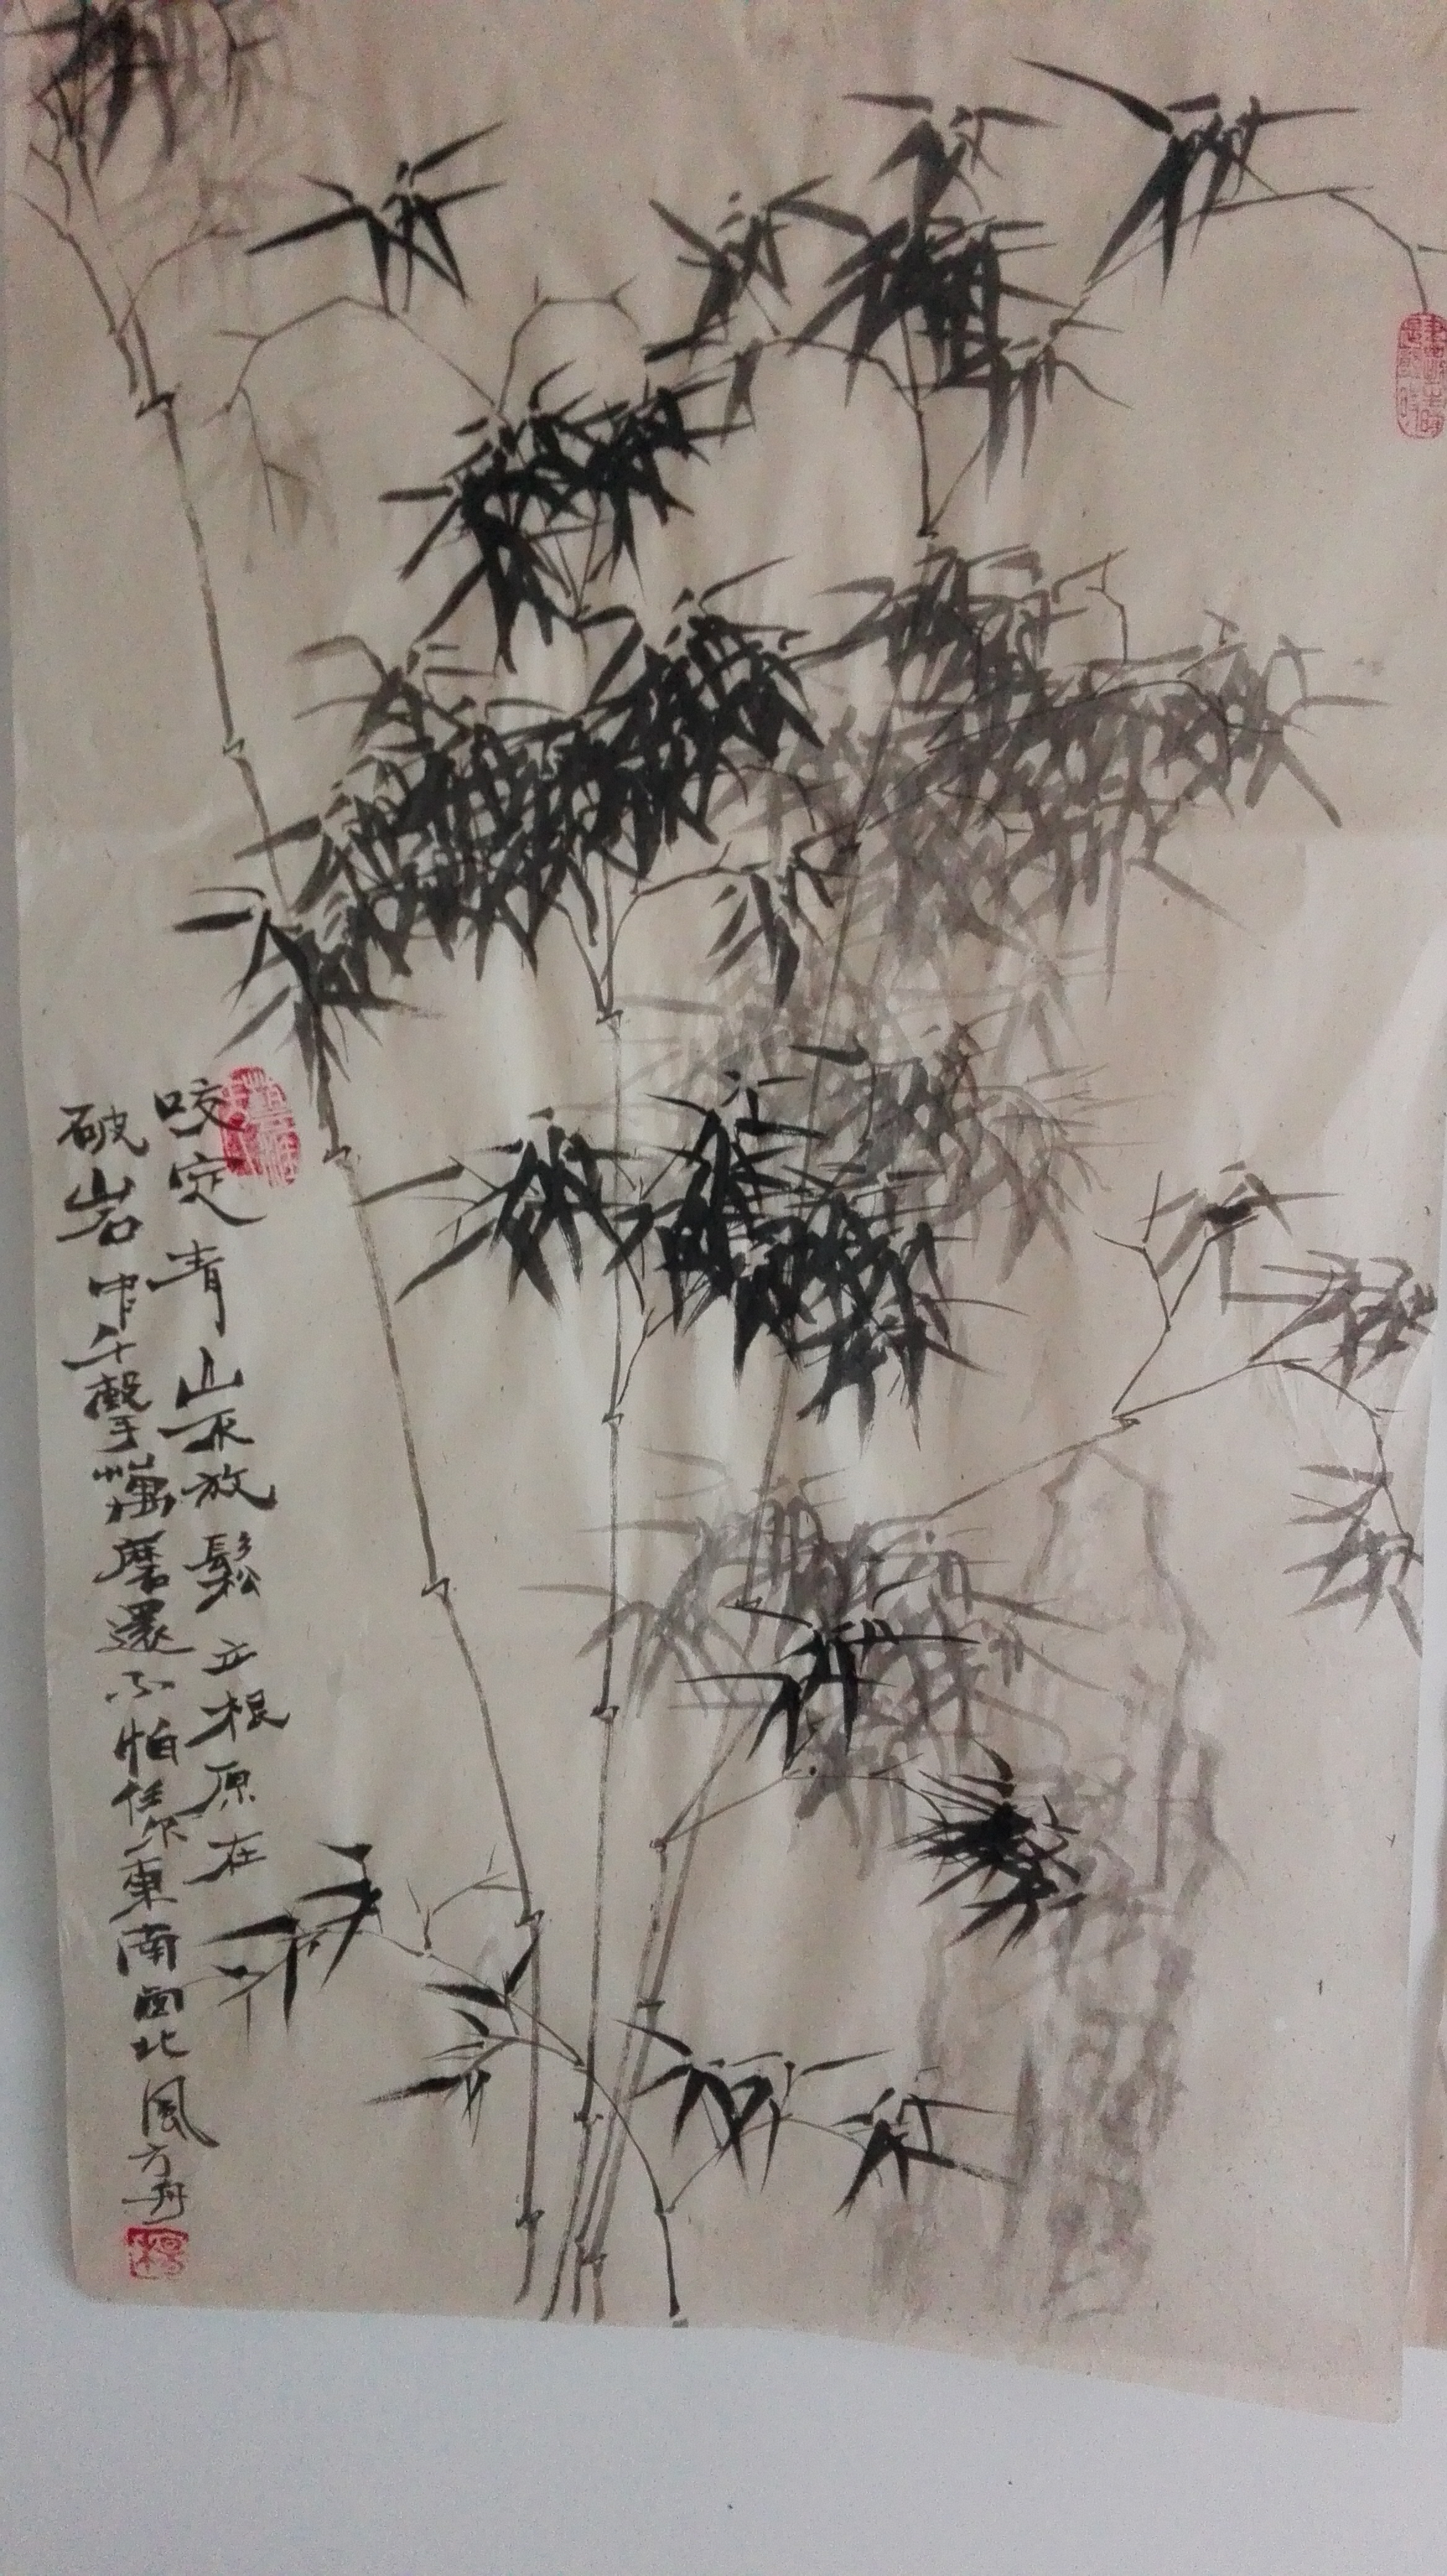 咬定青山不放鬆立根原在
破岩中千擊萬磨還不怕任尔東南西北風方舟